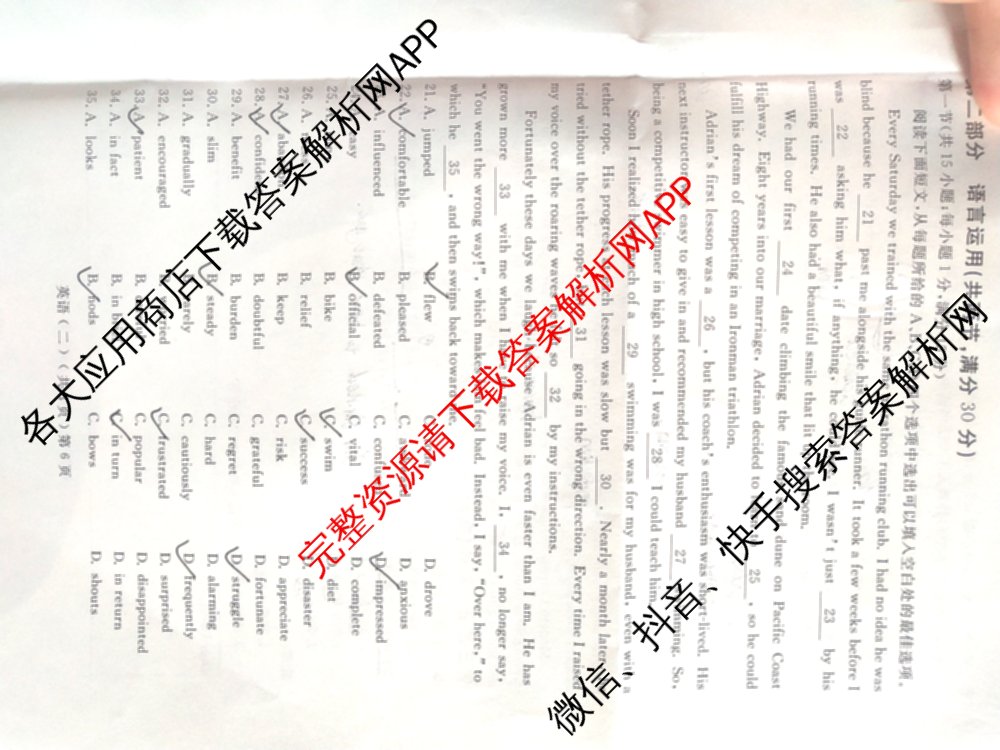 第二部分 语言运用(共 节,满分 30 分)
第一节(共 15 小题;每小题 1 分
阅读下面短文,从每题所给的 A 个选项中选出可以填入空白处的最佳选项。
Every Saturday we trained with the sa thon running club. I had no idea he was
blind because he 21 past me alongside his nner. It took a few weeks before I
was 22 asking him what, if anything, he c I wasn't just 23 by his
running times. He also had a beautiful smile that lit oom.
We had our first 24 date climbing the famo nd dune on Pacific Coast
Highway. Eight years into our marriage, Adrian decided to 25 , so he could
fulfill his dream of competing in an Ironman triathlon.
Adrian's first lesson was a 26 , but his coach's enthusiasm was short-lived. His
next instructor s easy to give in and recommended my husband 27 ning. So,
being a competiti immer in high school, I was 28 I could teach him.
Soon I realized h ch of a 29 swimming was for my husband, even with a
tether rope. His progress ch lesson was slow but 30 . Nearly a month later
tried without the tether rope 31 going in the wrong direction. Every time I raised
my voice over the roaring waves, he so 32 by my instructions.
Fortunately these days we laugh use Adrian is even faster than I am. He has
grown more 33 with me when I ha raise my voice. I, 34 , no longer say,
"You went the wrong way!", which make feel bad. Instead, I say, "Over here," to
which he 35 , and then swims back toward
21. A. jumped B. flew D. drove
22. A. comfortable B. pleased D. anxious
A. influenced B. defeated D. impressed
easy B. official C. vital D. complete
25. A. B. bike C. swim D. diet
26. A. B. relief C. success D. disaster
27. B. keep C. risk D. appreciate
28. confide B. doubtful C. grateful D. fortunate
29. A. benefit B. burden C. regret D. struggle
30. A. slim B. steady C. hard D. alarming
31. A. gradually B. rarely C. cautiously D. frequently
32. A. encouraged C. frustrated D. surprised
33. A. patient C. popular D. disappointed
34. A. in fact B. in C. in turn D. in return
35. A. looks B. nods C. bows D. shouts
英语(二)(共 页)第 6 页
各大应用商店下载答案解析网APP
完整资源请下载答案解析网APP
微信、抖音、快手搜索答案解析网